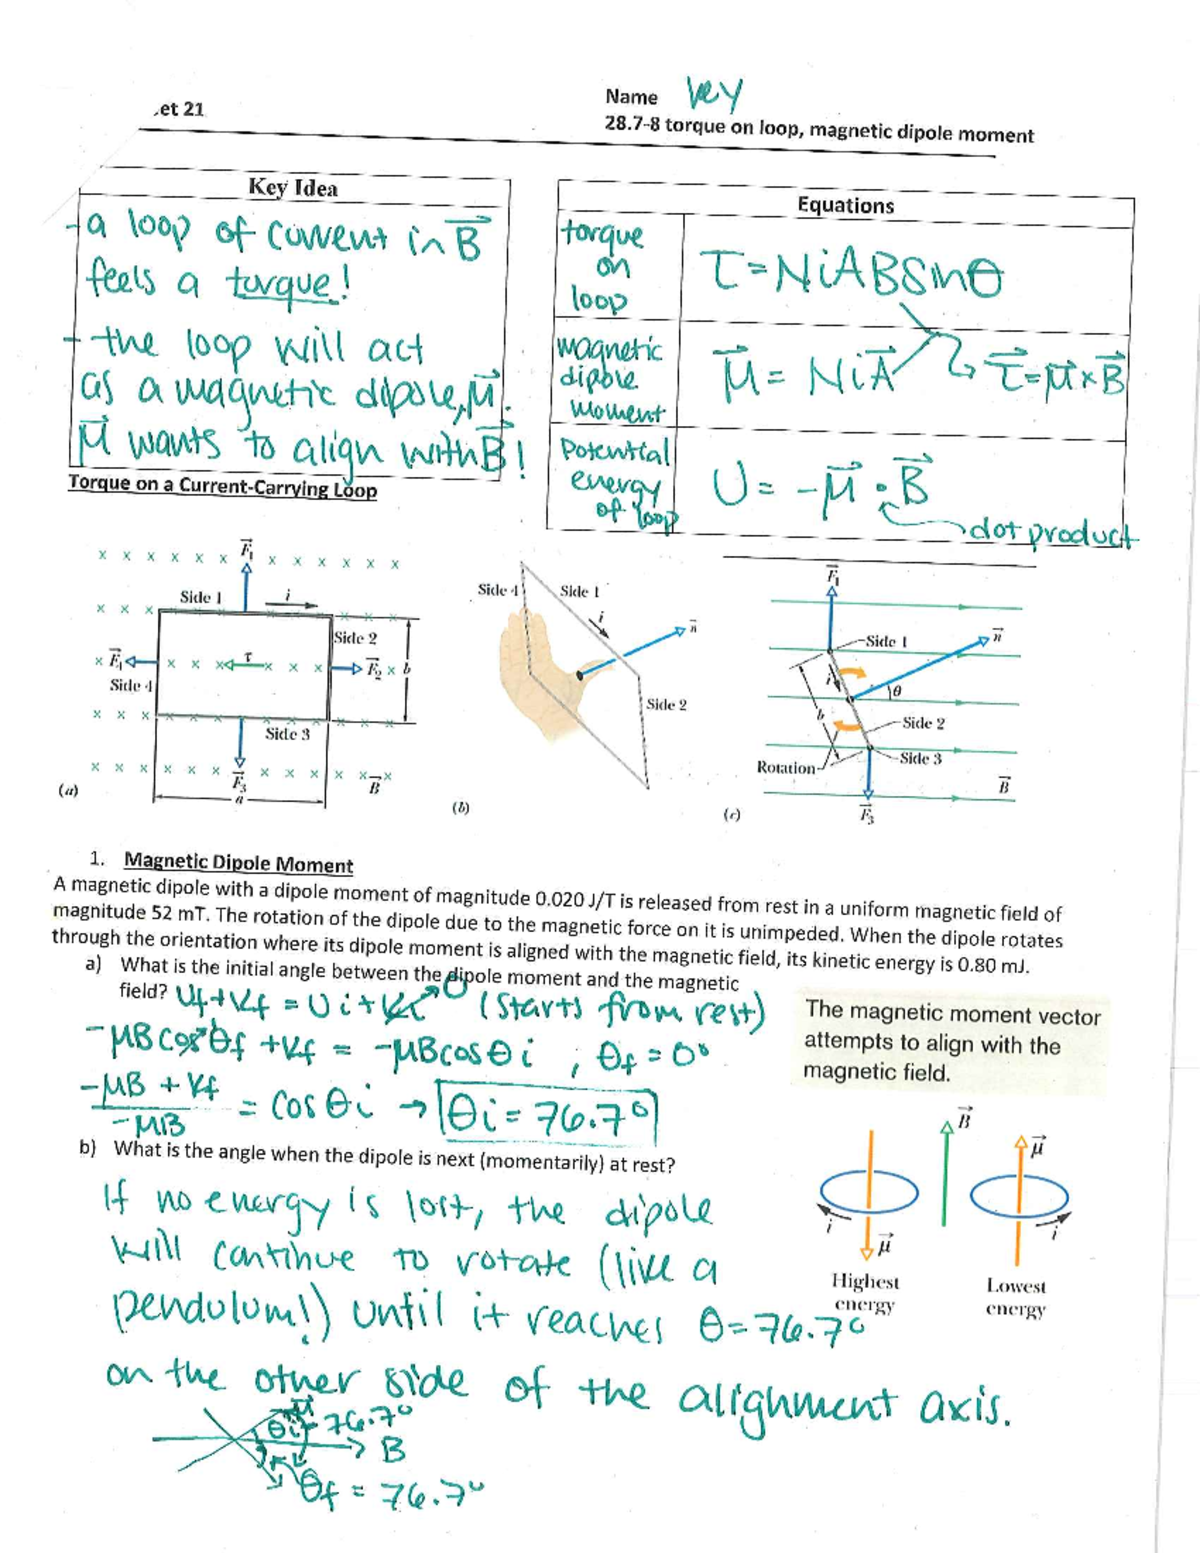 .et 21
Name Key
28.7-8 torque on loop, magnetic dipole moment
Key Idea
- a loop of current in B⃗
feels a torque!
- the loop will act
as a magnetic dipole, μ⃗.
μ⃗ wants to align with B⃗!
Equations
torque on loop
τ = NiABsinθ
magnetic dipole moment
μ⃗ = NiA⃗
τ⃗ = μ⃗ × B⃗
Potential energy of loop
U = -μ⃗ · B⃗
dot product
Torque on a Current-Carrying Loop
F⃗₁
Side 1
i
Side 2
F⃗₁
τ
F⃗₂
b
Side 4
Side 3
F⃗₃
B⃗
a
(a)
Side 4
Side 1
i
n⃗
Side 2
(b)
F⃗₁
Side 1
n⃗
i
θ
b
Side 2
Side 3
Rotation
B⃗
F⃗₃
(c)
1. Magnetic Dipole Moment
A magnetic dipole with a dipole moment of magnitude 0.020 J/T is released from rest in a uniform magnetic field of
magnitude 52 mT. The rotation of the dipole due to the magnetic force on it is unimpeded. When the dipole rotates
through the orientation where its dipole moment is aligned with the magnetic field, its kinetic energy is 0.80 mJ.
a) What is the initial angle between the dipole moment and the magnetic
field? Uf + Kf = Ui + Ki 0 (starts from rest)
-μBcosθf + Kf = -μBcosθi , θf = 0°
-μB + Kf / -μB = cosθi → θi = 76.7°
The magnetic moment vector
attempts to align with the
magnetic field.
b) What is the angle when the dipole is next (momentarily) at rest?
If no energy is lost, the dipole
will continue to rotate (like a
pendulum!) until it reaches θ = 76.7°
on the other side of the alignment axis.
B⃗
μ⃗
i
μ⃗
i
Highest
energy
Lowest
energy
μ⃗
θi = 76.7°
B
θf = 76.7°